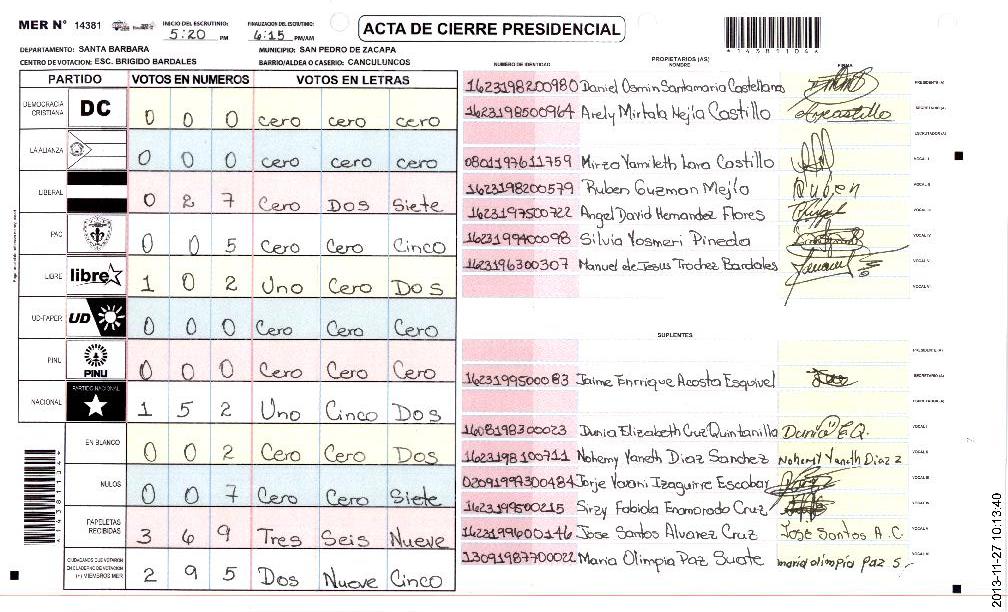 MER N° 14381
INICIO DEL ESCRUTINIO: 5:20 PM
FINALIZACION DEL ESCRUTINIO: 6:15 PM/AM
ACTA DE CIERRE PRESIDENCIAL
*14381104*
DEPARTAMENTO: SANTA BARBARA
MUNICIPIO: SAN PEDRO DE ZACAPA
CENTRO DE VOTACION: ESC. BRIGIDO BARDALES
BARRIO/ALDEA O CASERIO: CANCULUNCOS
PARTIDO VOTOS EN NUMEROS VOTOS EN LETRAS
DEMOCRACIA CRISTIANA DC 0 0 0 cero cero cero
LA ALIANZA 0 0 0 cero cero cero
LIBERAL 0 2 7 Cero Dos Siete
PAC 0 0 5 Cero Cero Cinco
LIBRE libre 1 0 2 Uno Cero Dos
UD-FAPER UD 0 0 0 Cero Cero Cero
PINU PINU 0 0 0 Cero Cero Cero
NACIONAL PARTIDO NACIONAL 1 5 2 Uno Cinco Dos
EN BLANCO 0 0 2 Cero Cero Dos
NULOS 0 0 7 Cero Cero Siete
PAPELETAS RECIBIDAS 3 6 9 Tres Seis Nueve
CIUDADANOS QUE VOTARON EN CUADERNO DE VOTACION (+) MIEMBROS MER 2 9 5 Dos Nueve Cinco
PROPIETARIOS (AS)
NUMERO DE IDENTIDAD NOMBRE FIRMA
1623198200980 Daniel Osmin Santamaria Castellano PRESIDENTE (A)
1623198500964 Arely Mirtala Mejia Castillo SECRETARIO (A)
ESCRUTADOR (A)
0801197611759 Mirza Yamileth Lara Castillo VOCAL I
1623198200579 Ruben Guzman Mejía Ruben VOCAL II
1623197500722 Angel David Hernandez Flores VOCAL III
1623199400098 Silvia Yosmeri Pineda VOCAL IV
1623196300307 Manuel de Jesus Trochez Bardales VOCAL V
VOCAL VI
SUPLENTES
PRESIDENTE (A)
1623199500083 Jaime Enrrique Acosta Esquivel SECRETARIO (A)
ESCRUTADOR (A)
1608198300023 Dunia Elizabeth Cruz Quintanilla Dunia E.Q. VOCAL I
1623198100711 Nohemy Yaneth Diaz Sanchez Nohemy Yaneth Diaz Z VOCAL II
0209199300484 Jorje Yovani Izaguirre Escobar VOCAL III
1623199500215 Sirzy Fabiola Enamorado Cruz VOCAL IV
1623199600146 Jose Santos Alvarez Cruz Jose Santos A.C. VOCAL V
1309198770022 Maria Olimpia Paz Suate maria olimpia Paz S. VOCAL VI
2013-11-27 10:13:40